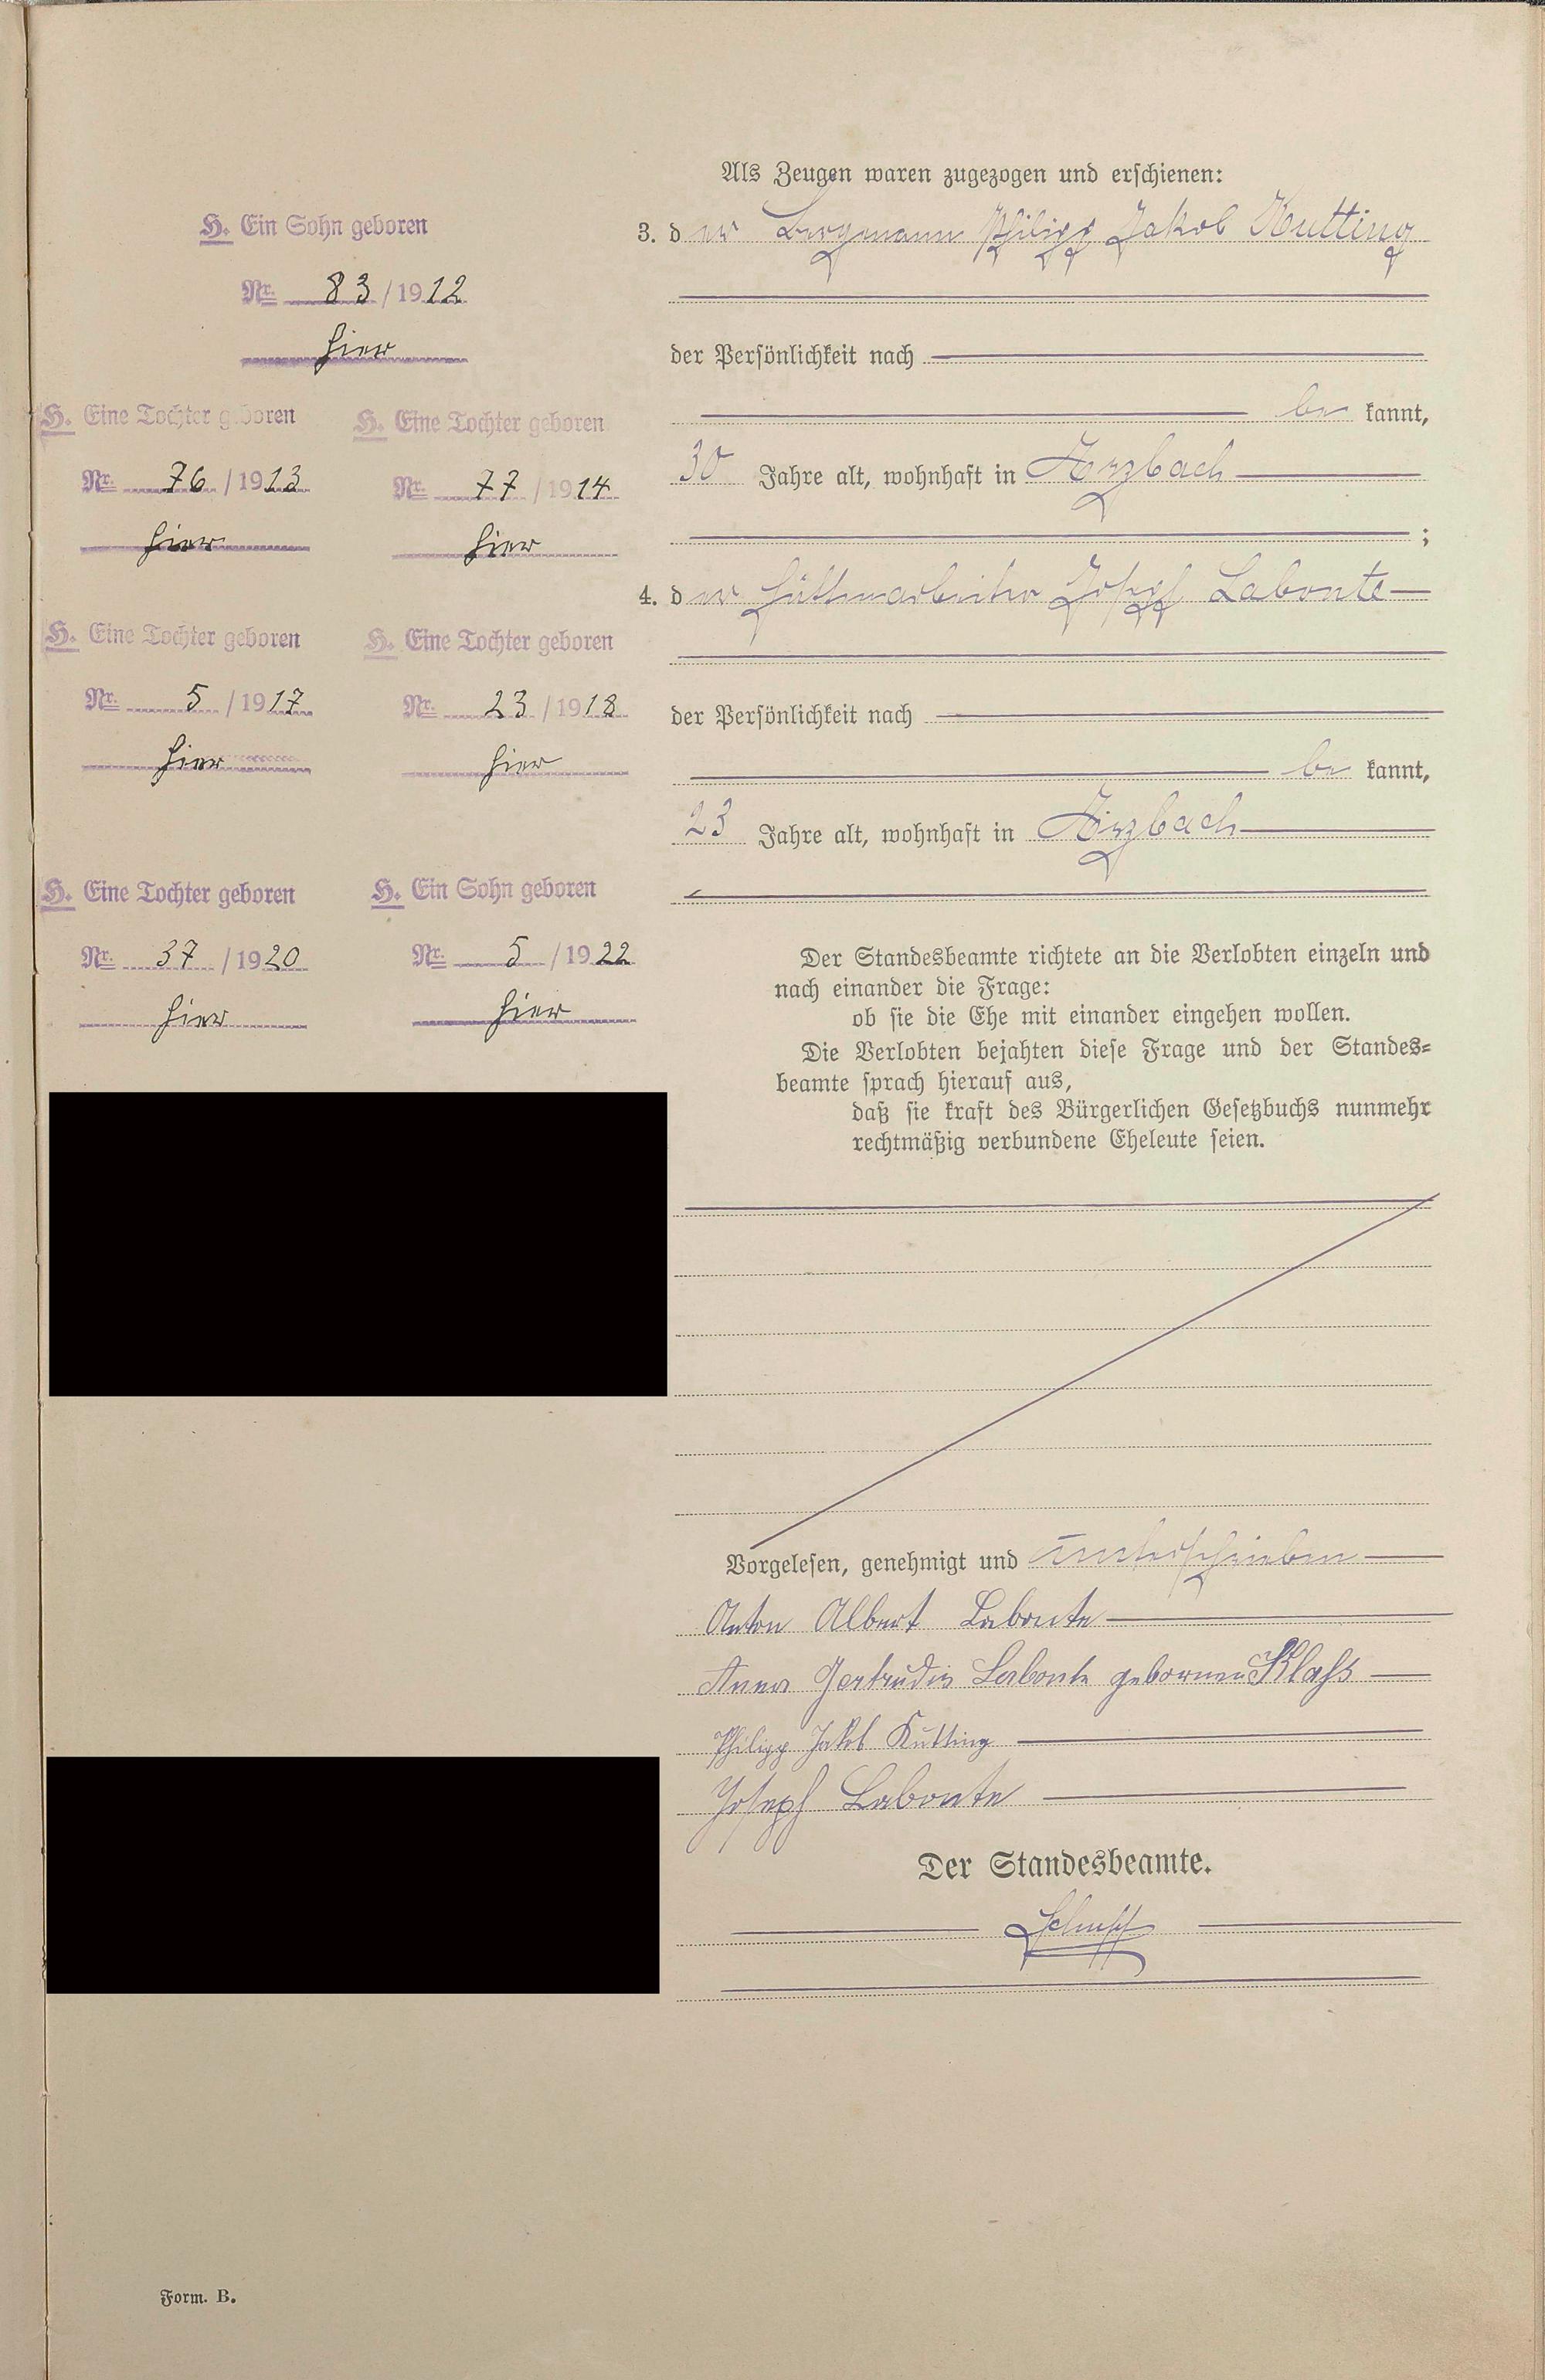 H. Ein Sohn geboren
Nr. 83/1912
hier
H. Eine Tochter geboren
Nr. 76/1913
hier
H. Eine Tochter geboren
Nr. 77/1914
hier
H. Eine Tochter geboren
Nr. 5/1917
hier
H. Eine Tochter geboren
Nr. 23/1918
hier
H. Eine Tochter geboren
Nr. 37/1920
hier
H. Ein Sohn geboren
Nr. 5/1922
hier
Als Zeugen waren zugezogen und erschienen:
3. der Bergmann Philipp Jakob Kutting
der Persönlichkeit nach
be kannt,
30 Jahre alt, wohnhaft in Arzbach
;
4. der Hüttenarbeiter Josef Labonte
der Persönlichkeit nach
be kannt,
23 Jahre alt, wohnhaft in Arzbach
Der Standesbeamte richtete an die Verlobten einzeln und
nach einander die Frage:
ob sie die Ehe mit einander eingehen wollen.
Die Verlobten bejahten diese Frage und der Standes-
beamte sprach hierauf aus,
daß sie kraft des Bürgerlichen Gesetzbuchs nunmehr
rechtmäßig verbundene Eheleute seien.
Vorgelesen, genehmigt und unterschrieben
Anton Albert Labonte
Anna Gertrudis Labonte geborenen Klaß
Philipp Jakob Kutting
Joseph Labonte
Der Standesbeamte.
Form. B.